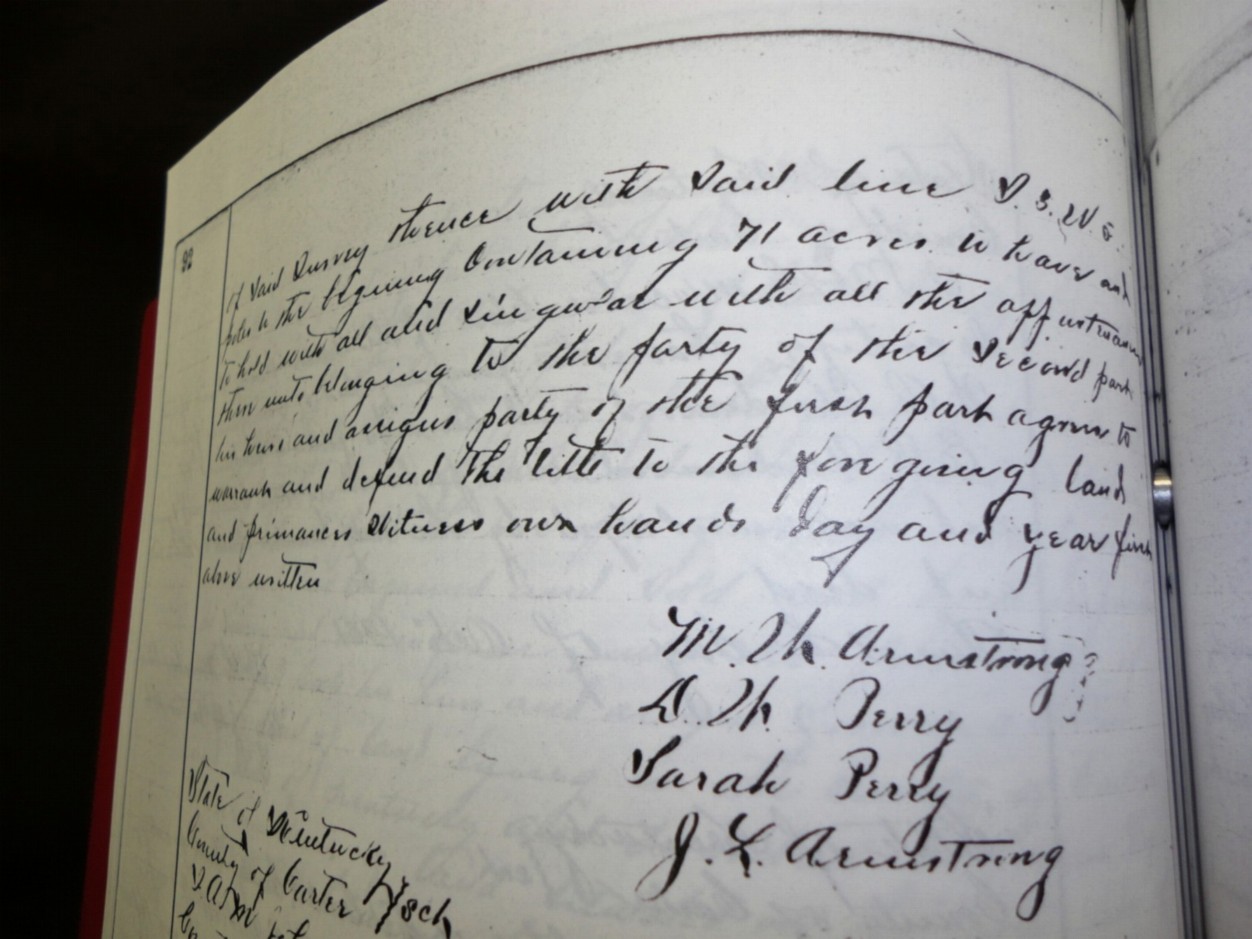 82
of said Survey thence with said line S. 3. W 5
poles to the begining Containing 71 acres to have and
to hold with all and singular with all the appurtenances
then unto blonging to the party of the second part
his heirs and assigns party of the first part agrees to
warrant and defend the title to the foregoing land
and primances Witness our hands day and year first
above written
M. W. Armstrong
D. W. Perry
Sarah Perry
J. L. Armstrong
State of Kentucky
County of Carter Sct